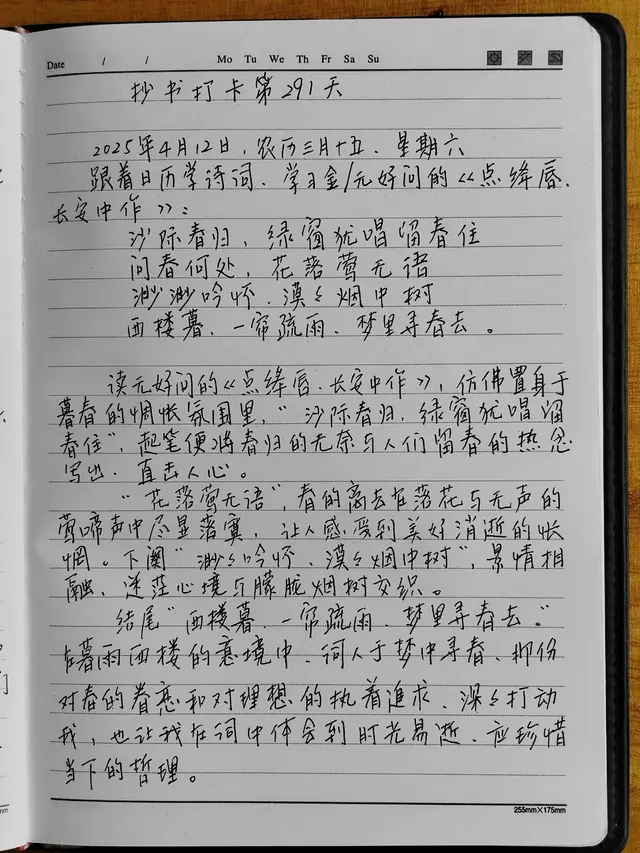 Date / / Mo Tu We Th Fr Sa Su
抄书打卡第291天
2025年4月12日，农历三月十五，星期六
跟着日历学诗词、学习金/元好问的《点绛唇、
长安中作》：
沙际春归，绿窗犹唱留春住
问春何处，花落莺无语
渺渺吟怀、漠々烟中树
西楼暮、一帘疏雨、梦里寻春去。
读元好问的《点绛唇、长安中作》，仿佛置身于
暮春的惆怅氛围里，"沙际春归，绿窗犹唱留
春住"，起笔便将春归的无奈与人们留春的热忱
写出、直击人心。
"花落莺无语"，春的离去在落花与无声的
莺啼声中尽显落寞、让人感受到美好消逝的怅
惘。下阕"渺々吟怀、漠々烟中树"，景情相
融、迷茫心境与朦胧烟树交织。
结尾"西楼暮、一帘疏雨、梦里寻春去。"
在暮雨西楼的意境中、词人于梦中寻春、那份
对春的眷恋和对理想的执着追求、深々打动
我，也让我在词中体会到时光易逝、应珍惜
当下的哲理。
255mm×175mm